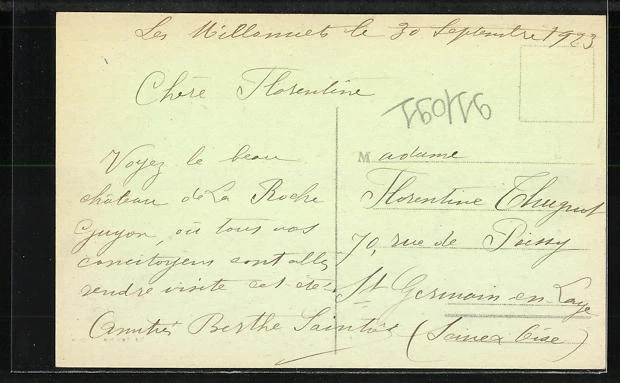 Les Millonnets le 30 Septembre 1923
Chère Florentine
Voyez le beau
château de La Roche
Guyon, où tous vos
concitoyens sont allés
rendre visite cet été.
Amitiés Berthe
Madame
Florentine Thugnot
70, rue de Poissy
St Germain en Laye
(Seine & Oise)